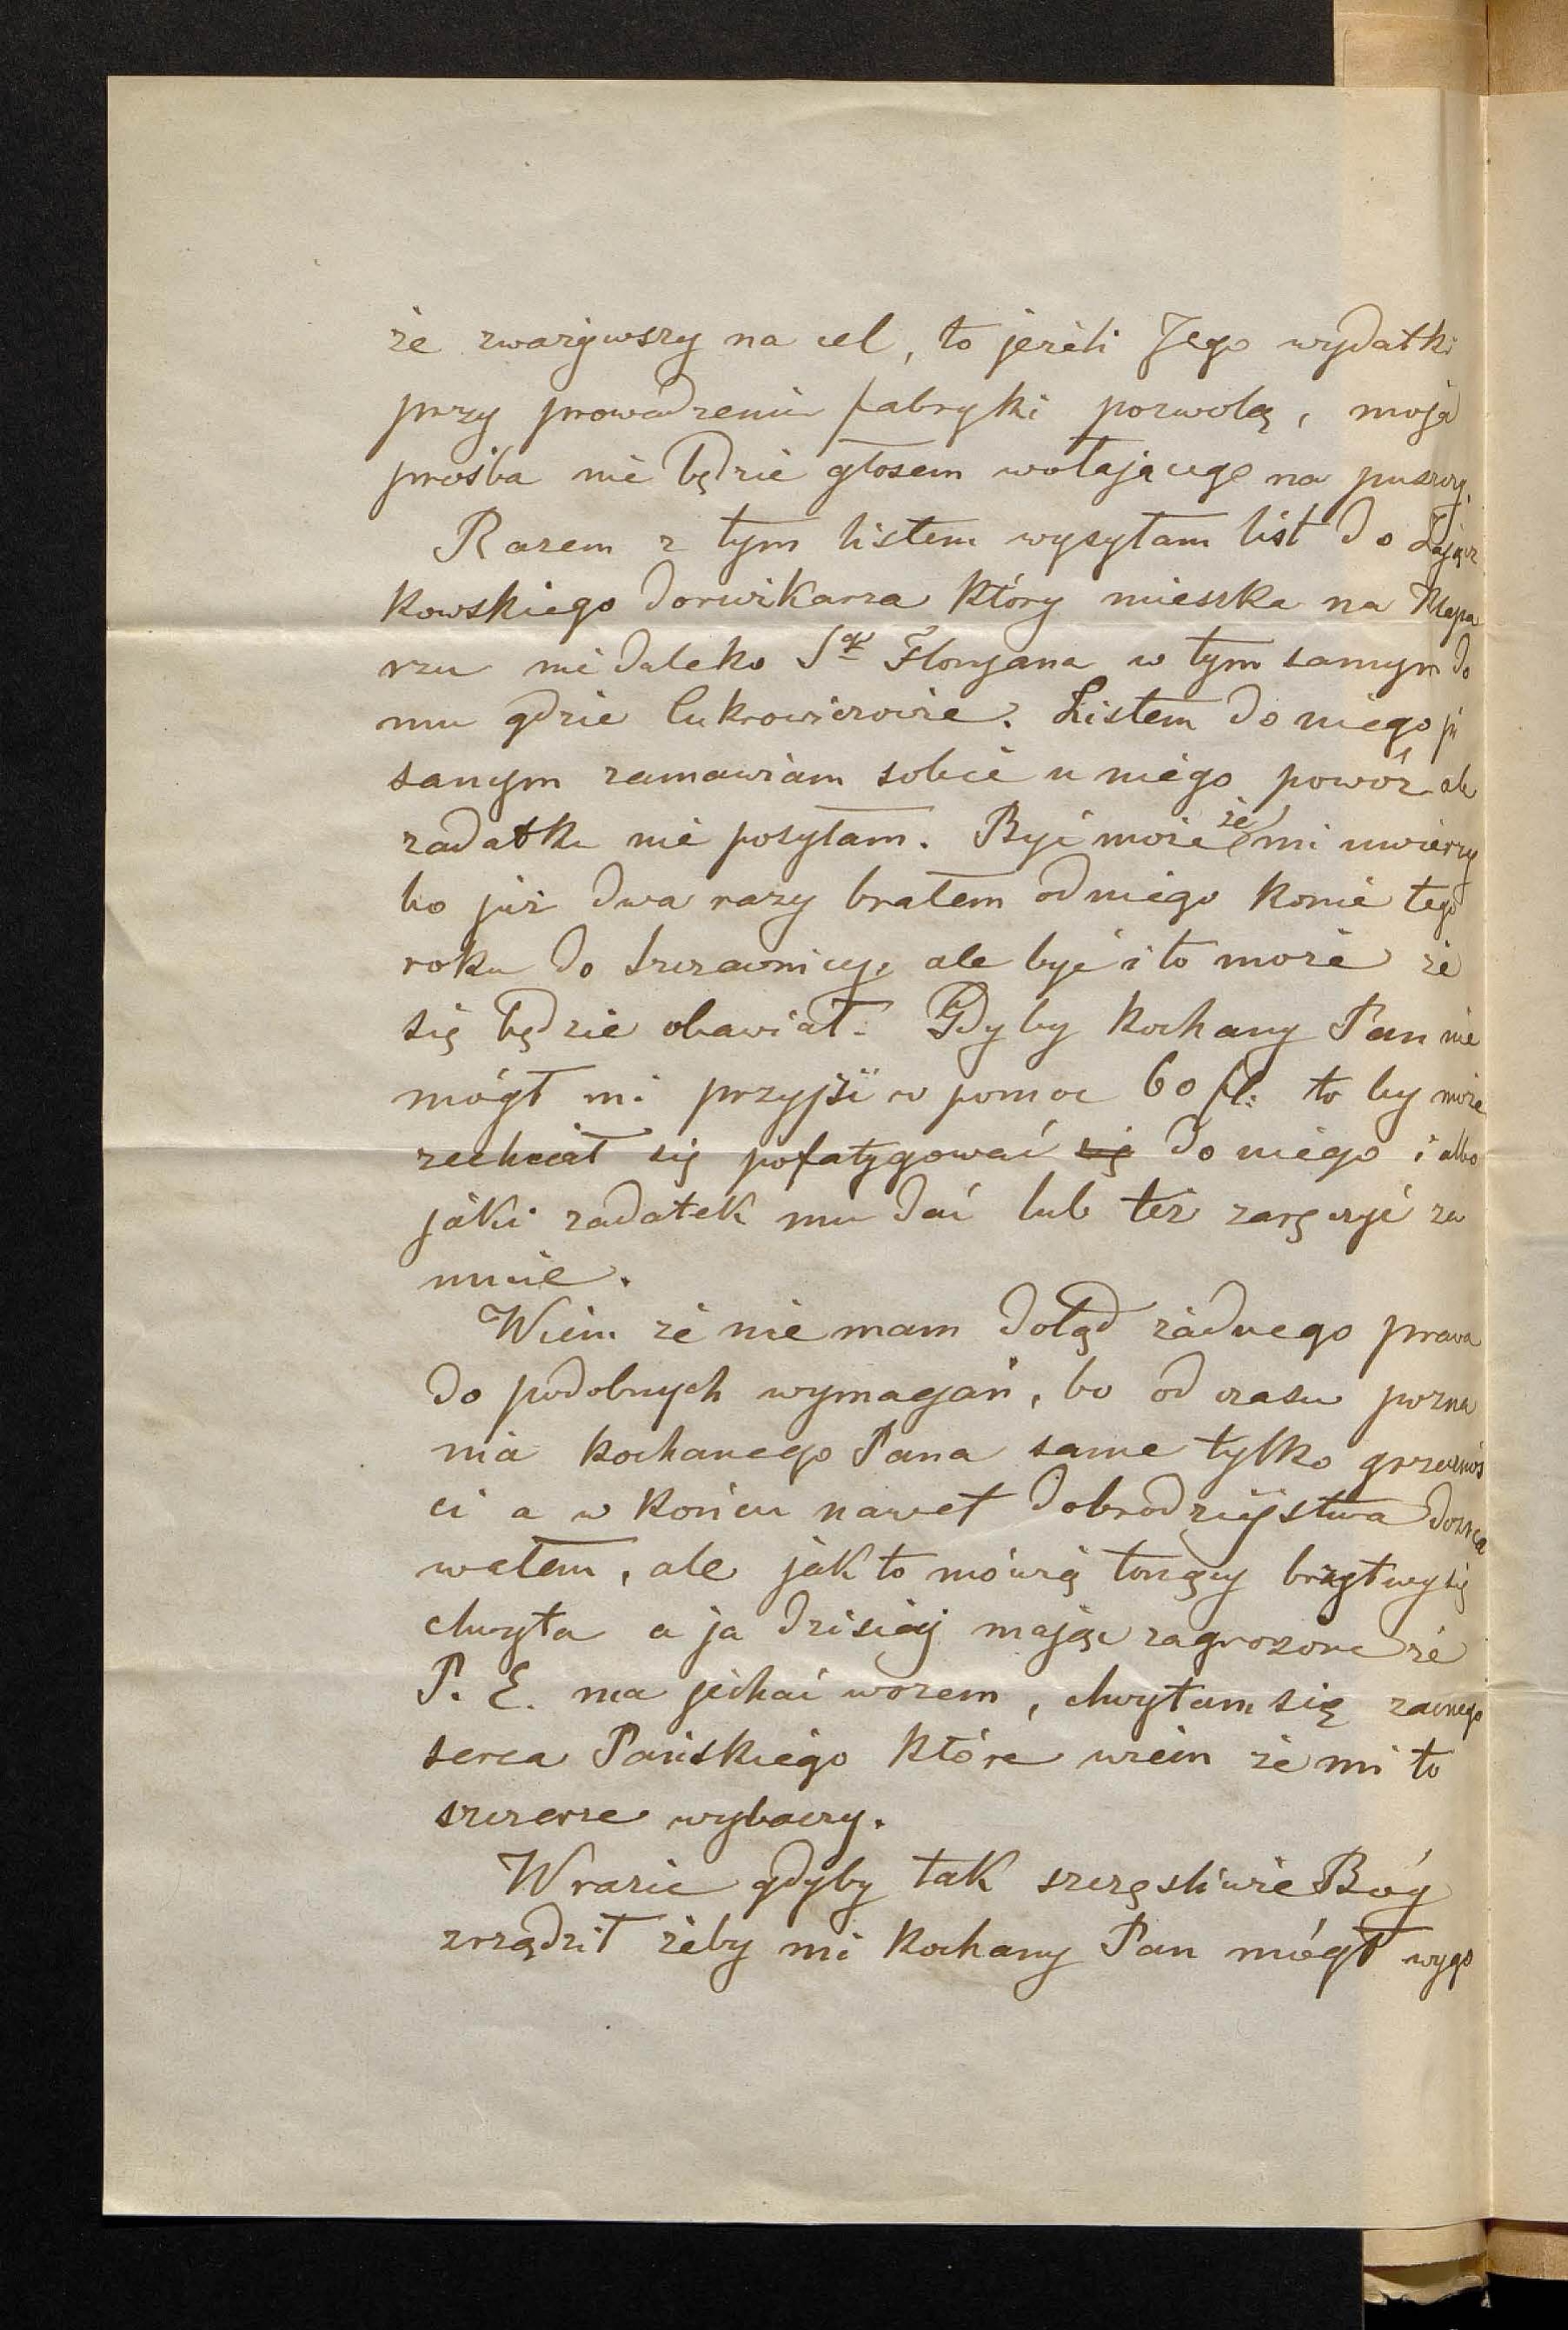 że zważywszy na cel, to jeżeli Jego wydatki
przy prowadzeniu fabryki pozwolą, moja
prośba nie będzie głosem wołającego na puszczy.
Razem z tym listem wysyłam list do Zającz
kowskiego dorożkarza który mieszka na Klepa
rzu nie daleko Sgo Floryana w tym samym do
mu gdzie Cukrowiczowie. Listem do niego pi
sanym zamawiam sobie u niego powóz ale
zadatku nie posyłam. Być może że mi uwierzy
bo już dwa razy brałem od niego konie tego
roku do Szczawnicy, ale być i to może że
się będzie obawiał. Gdyby kochany Pan nie
mógł mi przyjść w pomoc 60 fl: to by może
zechciał się pofatygować się do niego i albo
jaki zadatek mu dać lub też zaręczyć za
mnie.
Wiem że nie mam dotąd żadnego prawa
do podobnych wymagań, bo od czasu pozna
nia kochanego Pana same tylko grzecznoś
ci a w końcu nawet dobrodziejstwa dozna
wałem, ale jak to mówią tonący brzytwy się
chwyta a ja dzisiaj mając zagrożone że
P. E. ma jechać wozem, chwytam się zacnego
serca Pańskiego które wiem że mi to
szczerze wybaczy.
W razie gdyby tak szczęśliwie Bóg
zrządził żeby mi kochany Pan mógł wygo